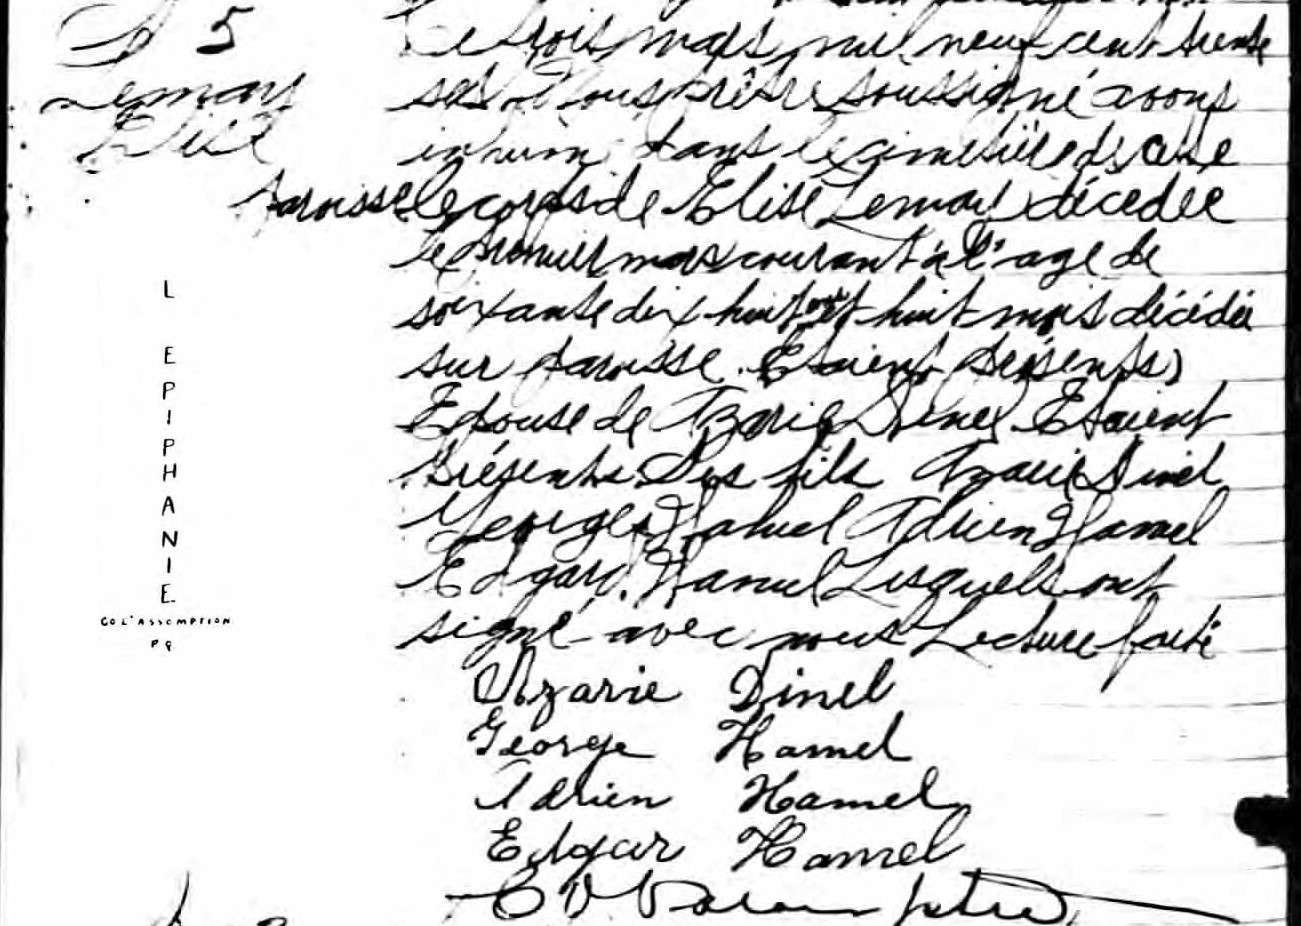 S 5
Lemay
Elise
Le trois mars mil neuf cent trente
sept Nous prêtre soussigné avons
inhumé dans le cimetière de cette
paroisse le corps de Elise Lemay décedée
le premier mars courant à l'age de
soixante dix-huit ans et huit mois décédée
sur paroisse. Etaient présents)
Epouse de Azarie Dinel Etaient
Présents Ses fils Azarie Dinel
Georges Hamel Adrien Hamel
Edgard Hamel Lesquels ont
signé avec nous Lecture faite
Azarie Dinel
George Hamel
Adrien Hamel
Edgar Hamel
ptre
L EPIPHANIE
CO L'ASSOMPTION
P Q